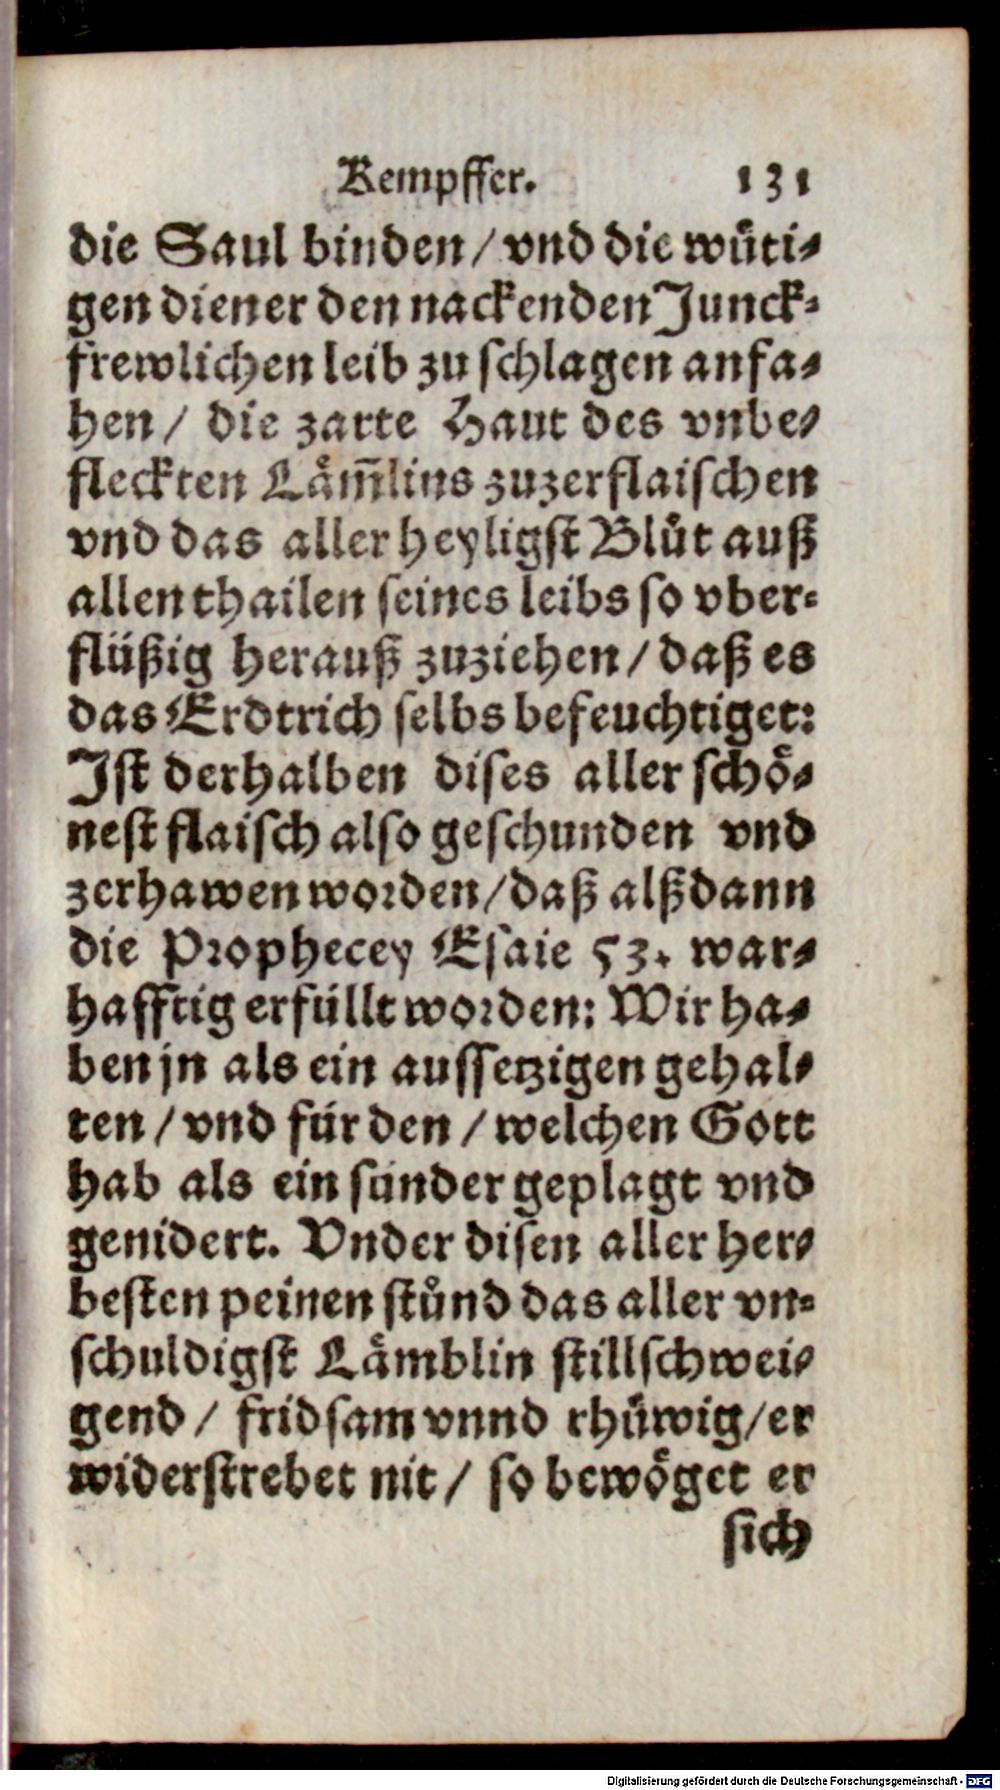 Kempffer. 131
die Saul binden / vnd die wuͤti-
gen diener den nackenden Junck-
frewlichen leib zu schlagen anfa-
hen / die zarte Haut des vnbe-
fleckten Laͤm̃lins zuzerflaischen
vnd das aller heyligst Bluͤt auß
allen thailen seines leibs so vber-
flüßig herauß zuziehen / daß es
das Erdtrich selbs befeuchtiget:
Ist derhalben dises aller schoͤ-
nest flaisch also geschunden vnd
zerhawen worden / daß alßdann
die Prophecey Esaie 53. war-
hafftig erfüllt worden: Wir ha-
ben jn als ein aussetzigen gehal-
ten / vnd für den / welchen Gott
hab als ein sünder geplagt vnd
genidert. Vnder disen aller her-
besten peinen stuͤnd das aller vn-
schuldigst Laͤmblin stillschwei-
gend / fridsam vnnd rhuͤwig / er
widerstrebet nit / so bewoͤget er
sich
Digitalisierung gefördert durch die Deutsche Forschungsgemeinschaft - DFG